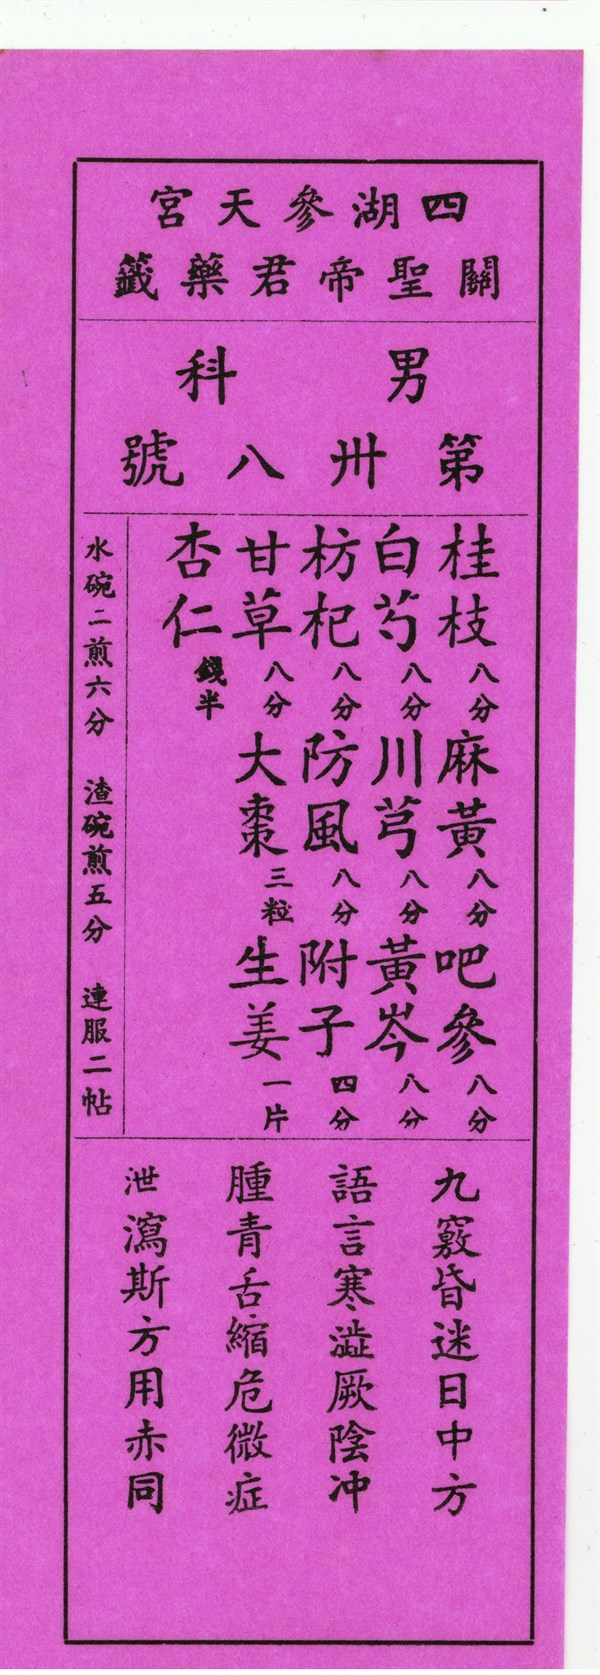 四湖參天宮
關聖帝君藥籤
男科
第卅八號
桂枝八分 麻黃八分 吧參八分
白芍八分 川芎八分 黃岑八分
枋杞八分 防風八分 附子四分
甘草八分 大棗三粒 生姜一片
杏仁錢半
水碗二煎六分 渣碗煎五分 連服二帖
九竅昏迷日中方
語言寒澁厥陰冲
腫青舌縮危微症
泄瀉斯方用赤同